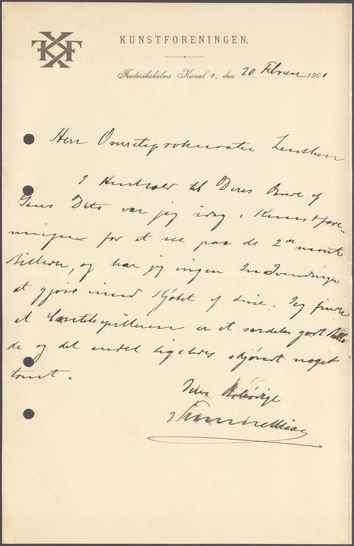 KUNSTFORENINGEN.
Frederiksholms Kanal 4, den 20 Februar 1901
Herr Overretsprokurator
I Henhold til Deres Brev af
Gens Dato var jeg idag i Kunstfore-
ningen for at se paa de 2
Billeder, og har jeg ingen Indvendinger
at gjøre imod Kjøbet af disse. Jeg finder
at er et særdeles godt Billede
de og det andet ligeledes skjøndt noget
tomt.
Deres Ærbødige